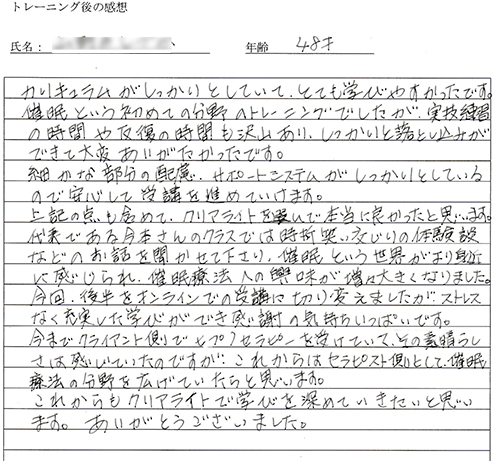 トレーニング後の感想
氏名： 年齢 48才
カリキュラムがしっかりとしていて、とても学びやすかったです。
催眠という初めての分野のトレーニングでしたが、実技練習
の時間や反復の時間も沢山あり、しっかいと落とし込みが
できて大変ありがたかったです。
細かな部分の配慮、サポートシステムがしっかりとしている
ので安心して受講を進めていけます。
上記の点も含めて、クリアライトを選んで本当に良かったと思います。
代表である今本さんのクラスでは時折笑い交じりの体験談
などのお話を聞かせて下さり、催眠という世界がより身近
に感じられ、催眠療法への興味が増々大きくなりました。
今回、後半をオンラインでの受講に切り変えましたがストレス
なく充実した学びができ感謝の気持ちいっぱいです。
今までクライアント側でヒプノセラピーを受けていて、その素晴らし
さは感じていたのですが、これからはセラピスト側として、催眠
療法の分野を広げていたらと思います。
これからもクリアライトで学びを深めていきたいと思い
ます。ありがとうございました。